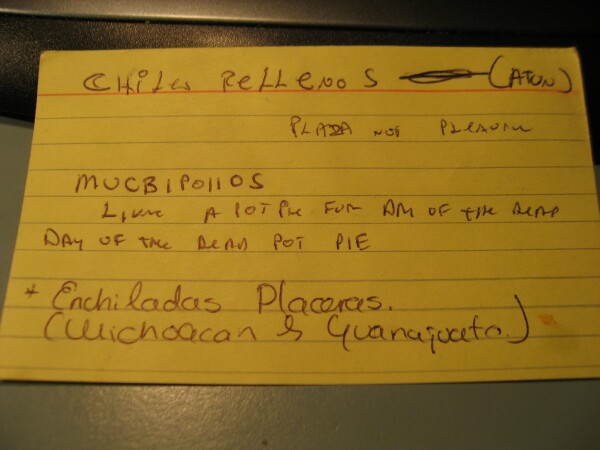 CHiles RELLENOS (ATUN)
PLAZA NOT PLEASURE
MUCBIPOllOS
LIKE A POT PIE FOR DAY OF THE DEAD
DAY OF THE DEAD POT PIE
* Enchiladas Placeras.
(Michoacan & Guanajuato.)